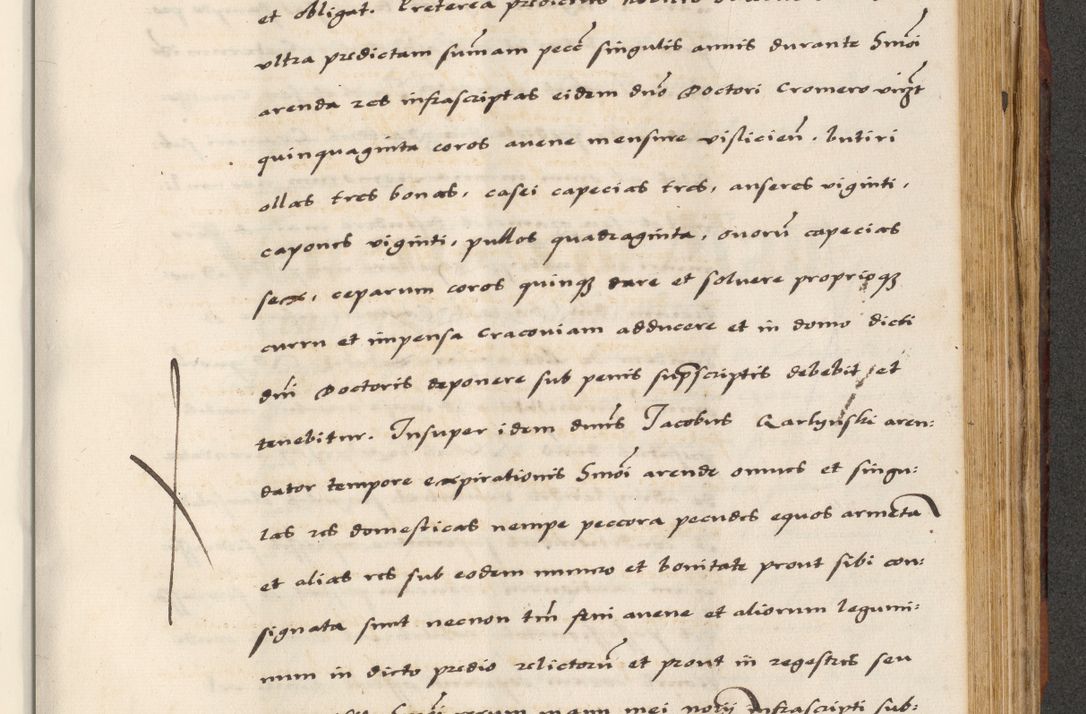 et obligat. Preterea predictus
ultra predictam sumam pecē singulis annis durante hmōi
arenda res infrascriptas eidem dnō Doctori Cromero vidzt
quinquaginta coros avene mensure visliciēn. butiri
ollas tres bonas, casei capecias tres, anseres viginti,
capones viginti, pullos quadraginta, ovorū capecias
sex, ceparum coros quinqz dare et solvere proprioqz
curru et impensa Cracoviam adducere et in domo dicti
dnī Doctoris deponere sub penis supscriptis debebit et
tenebitur. Insuper idem dnus Jacobus Garlynski aren:
dator tempore expirationis hmōi arende omnes et singu:
las res domesticas nempe peccora pecudes equos armēta
et alias res sub eodem numero et bonitate prout sibi con:
signata sunt necnon tm̄ feni avene et aliorum legumi:
num in dicto predio relictorū et prout in regestris seu
manu mei notīj infrascripti sub: